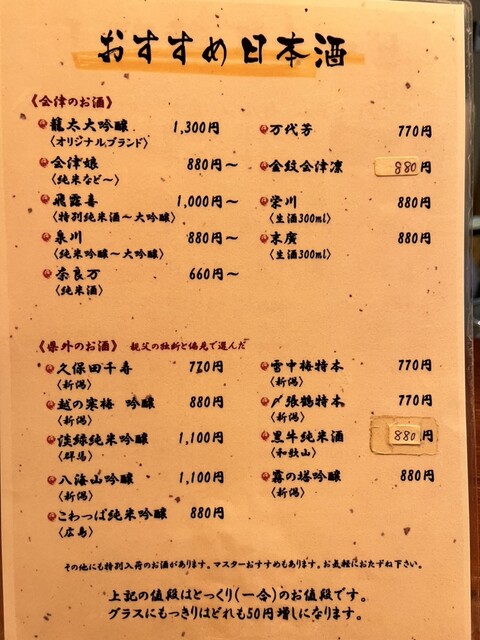 おすすめ日本酒
《会津のお酒》
龍太大吟醸 1,300円
〈オリジナルブランド〉
会津娘 880円～
〈純米など～〉
飛露喜 1,000円～
〈特別純米酒～大吟醸〉
泉川 880円～
〈純米吟醸～大吟醸〉
奈良万 660円～
〈純米酒〉
万代芳 770円
金紋会津凛 880円
栄川 880円
〈生酒300ml〉
末廣 880円
〈生酒300ml〉
《県外のお酒》 親父の独断と偏見で選んだ
久保田千寿 770円
〈新潟〉
越の寒梅 吟醸 880円
〈新潟〉
淡緑純米吟醸 1,100円
〈群馬〉
八海山吟醸 1,100円
〈新潟〉
こわっぱ純米吟醸 880円
〈広島〉
雪中梅特本 770円
〈新潟〉
〆張鶴特本 770円
〈新潟〉
黒牛純米酒 880円
〈和歌山〉
霧の塔吟醸 880円
〈新潟〉
その他にも特別入荷のお酒があります。マスターおすすめもあります。お気軽におたずね下さい。
上記の値段はとっくり(一合)のお値段です。
グラスにもっきりはどれも50円増しになります。